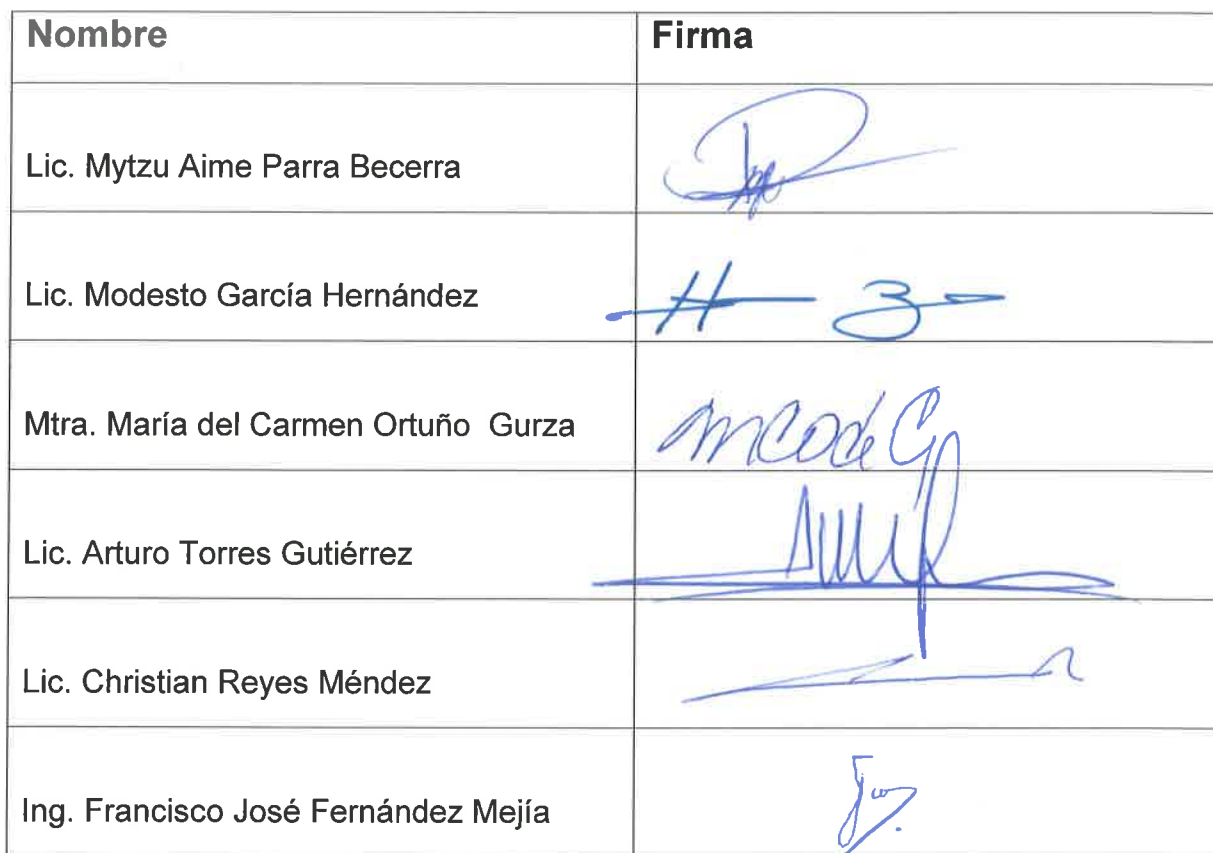 Nombre Firma
Lic. Mytzu Aime Parra Becerra
Lic. Modesto García Hernández
Mtra. María del Carmen Ortuño Gurza
Lic. Arturo Torres Gutiérrez
Lic. Christian Reyes Méndez
Ing. Francisco José Fernández Mejía